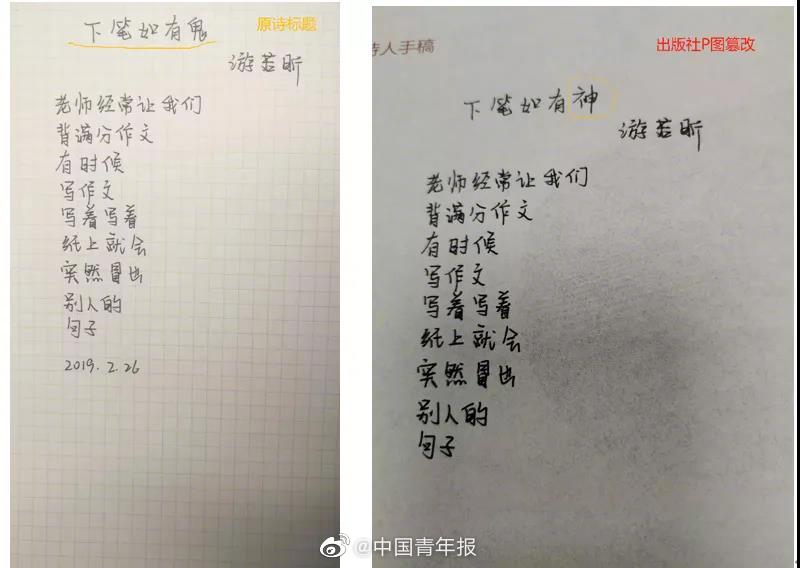 下笔如有鬼
原诗标题
游若昕
老师经常让我们
背满分作文
有时候
写作文
写着写着
纸上就会
突然冒出
别人的
句子
2019.2.26
诗人手稿
出版社P图篡改
下笔如有神
游若昕
老师经常让我们
背满分作文
有时候
写作文
写着写着
纸上就会
突然冒出
别人的
句子
@中国青年报